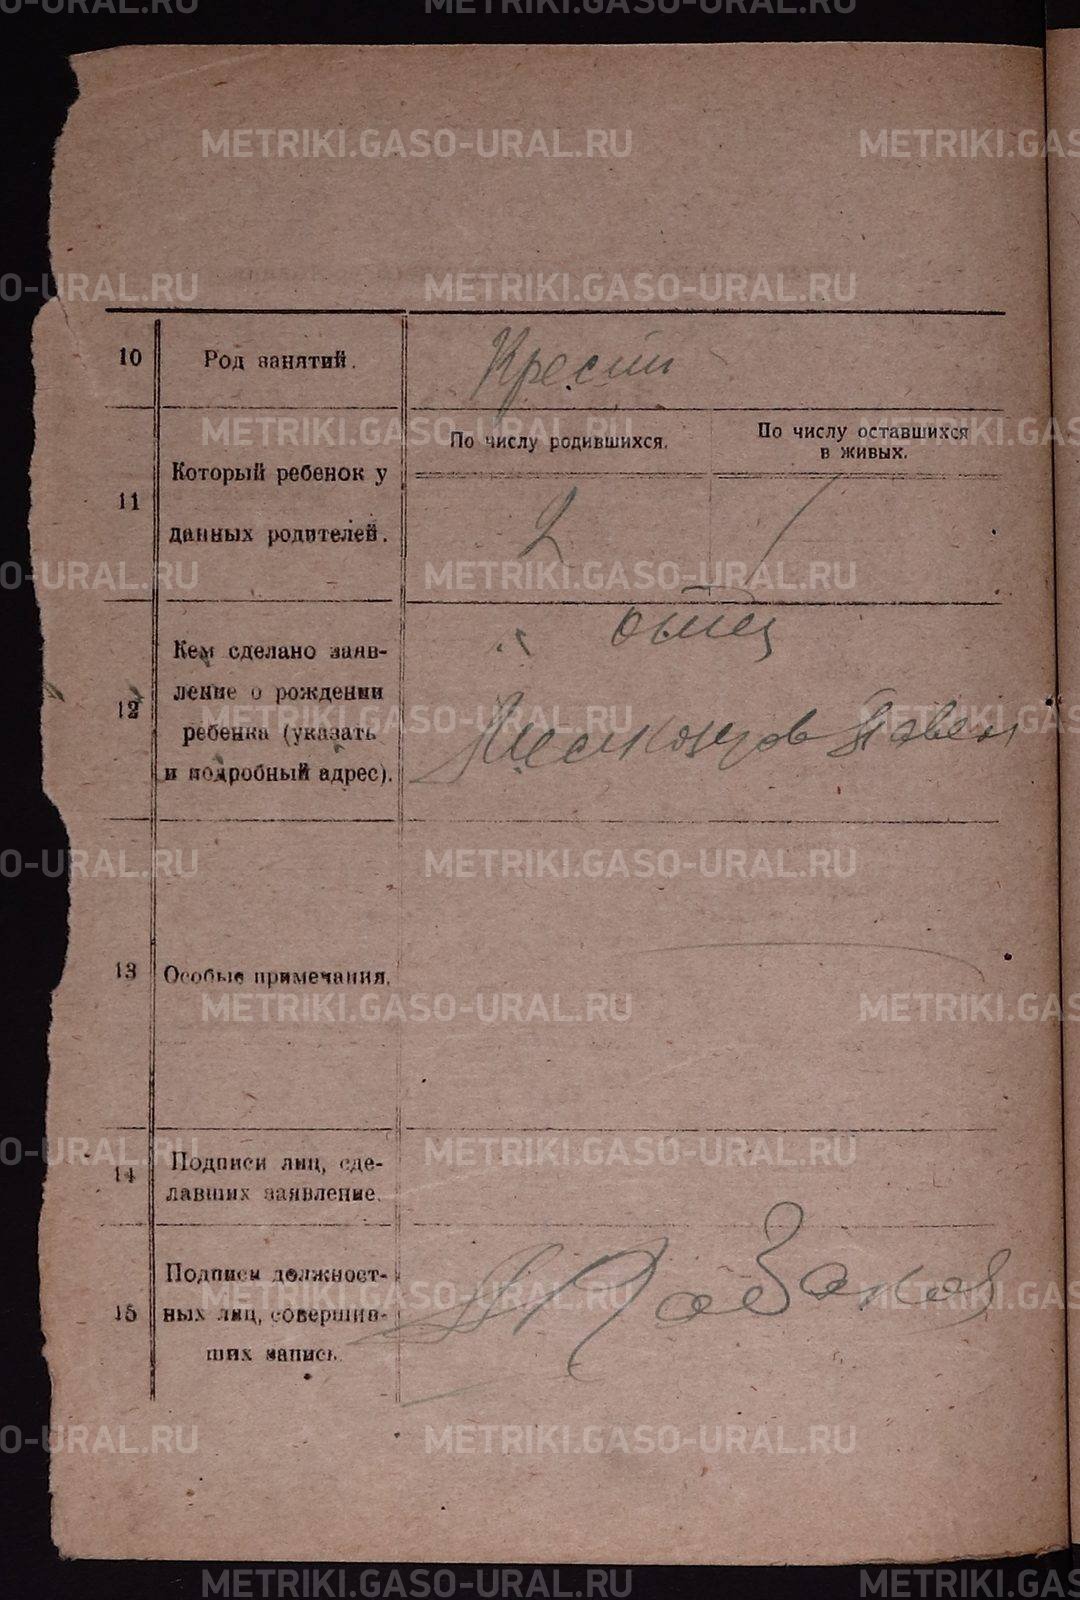 10
Род занятий.
Крестн
11
Который ребенок у
данных родителей.
По числу родившихся.
По числу оставшихся
в живых.
2
/
12
Кем сделано заяв-
ление о рождении
ребенка (указать
и подробный адрес).
отец
Павел
13
Особые примечания.
14
Подписи лиц, сде-
лавших заявление.
15
Подписи должност-
ных лиц, совершив-
ших запись.
METRIKI.GASO-URAL.RU